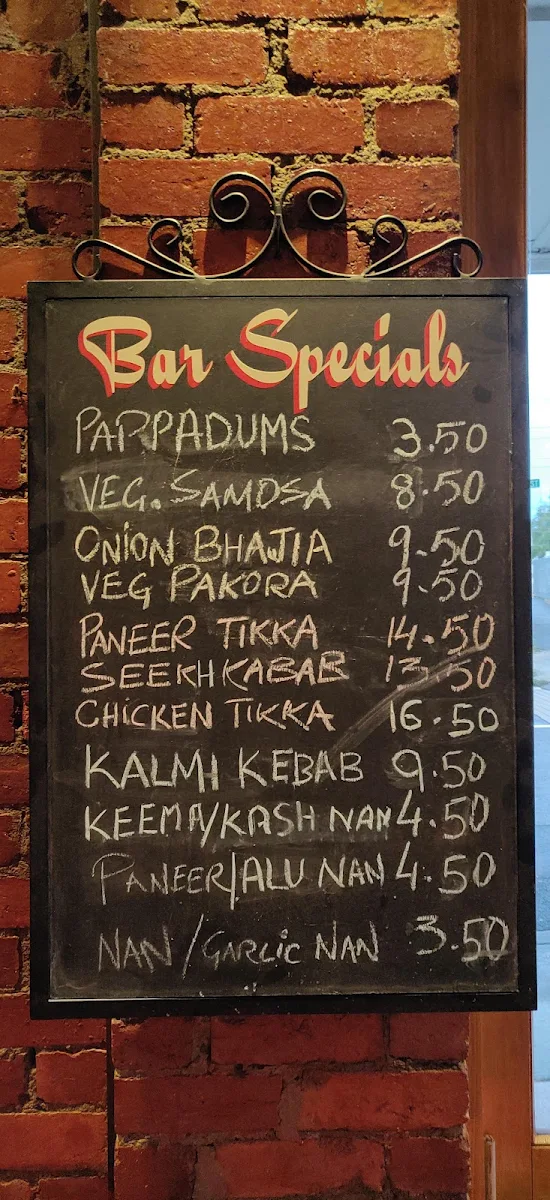 Bar Specials
PAPPADUMS 3.50
VEG. SAMOSA 8.50
ONION BHAJIA 9.50
VEG PAKORA 9.50
PANEER TIKKA 14.50
SEEKH KABAB 13.50
CHICKEN TIKKA 16.50
KALMI KEBAB 9.50
KEEMA/KASH NAN 4.50
PANEER/ALU NAN 4.50
NAN / GARLIC NAN 3.50